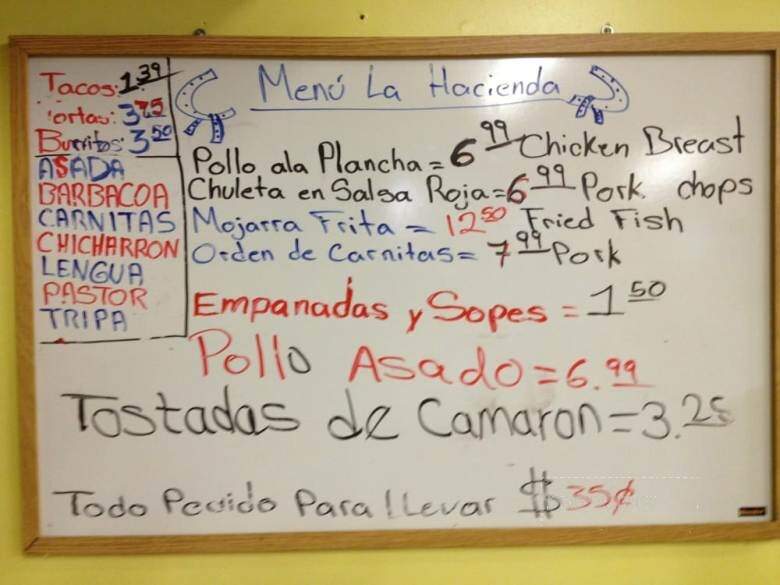 Menú La Hacienda
Tacos: 1.39
Tortas: 3.75
Burritos: 3.50
ASADA
BARBACOA
CARNITAS
CHICHARRON
LENGUA
PASTOR
TRIPA
Pollo ala Plancha = 6.99 Chicken Breast
Chuleta en Salsa Roja = 6.99 Pork chops
Mojarra Frita = 12.50 Fried Fish
Orden de Carnitas = 7.99 Pork
Empanadas y Sopes = 1.50
Pollo Asado = 6.99
Tostadas de Camaron = 3.25
Todo Pedido Para llevar $ 35¢